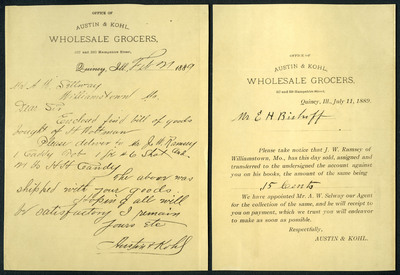 OFFICE OF
AUSTIN & KOHL,
WHOLESALE GROCERS,
Quincy, Ill. Feb 27 1889
Mr A. R.
Williamstown Mo.
Dear Sir
Enclosed find bill of goods
bought of
Please deliver to Mr J. W. Ramsey
1 Candy
Candy
The above was
shipped with your goods.
Hoping all will
be satisfactory I remain
Yours etc
Austin & Kohl
OFFICE OF
AUSTIN & KOHL,
WHOLESALE GROCERS,
Quincy, Ill., July 11, 1889.
Mr. E H Bishoff
Please take notice that J. W. Ramsey of
Williamstown, Mo., has this day sold, assigned and
transferred to the undersigned the account against
you on his books, the amount of the same being
15 Cents
We have appointed Mr. A. W. Selway our Agent
for the collection of the same, and he will receipt to
you on payment, which we trust you will endeavor
to make as soon as possible.
Respectfully,
AUSTIN & KOHL.